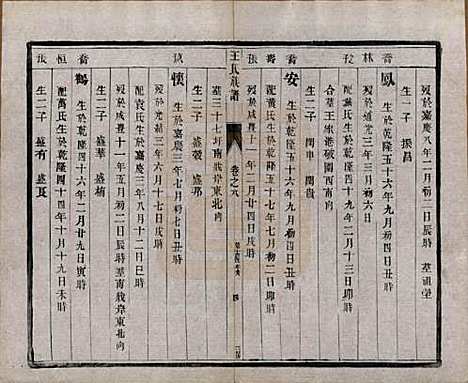 歿於嘉慶八年二月初二日辰時 墓祖塋
生一子 振昌
喬林
鳳 生於乾隆五十六年九月初四日丑時
歿於道光三年三月十三日卯時
合墓王家港破圍西南向
生二子 開申 開貴
喬
安 生於乾隆五十六年九月初五日丑時
配黃氏生於乾隆五十七年七月初二日卯時
歿於咸豐十一年二月廿四日戌時
王氏族譜
卷之六
墓三十七圩南戧岸東北向
生二子 盛榮 盛邦
懷 生於嘉慶三年七月初七日丑時
歿於光緒三年六月十七日戌時
配袁氏生於嘉慶三年八月十二日巳時
歿於咸豐十一年五月初二日辰時墓南戧岸東北向
生二子 盛華 盛楠
喬恒
鶴 生於乾隆四十六年二月廿九日寅時
配萬氏生於乾隆四十四年十月十九日未時
生二子 盛有 盛良